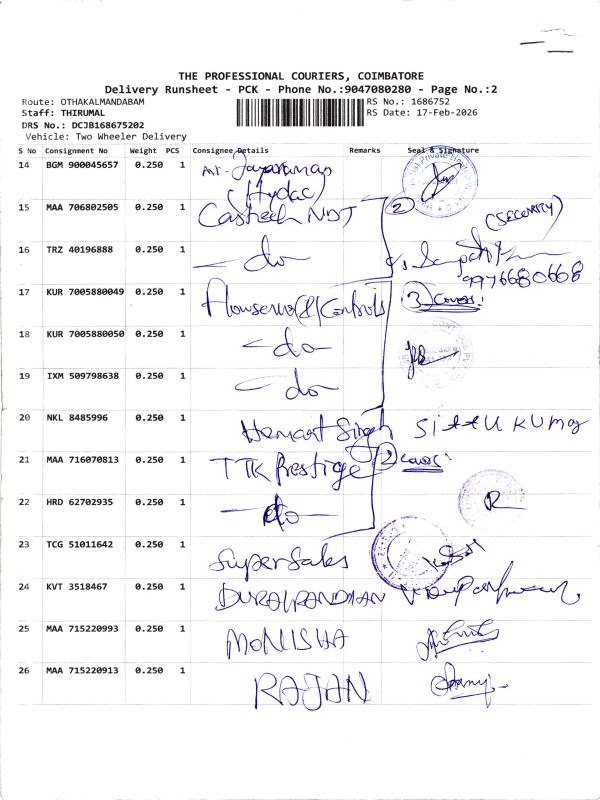 THE PROFESSIONAL COURIERS, COIMBATORE
Delivery Runsheet - PCK - Phone No.:9047080280 - Page No.:2
Route: OTHAKALMANDABAM
Staff: THIRUMAL
DRS No.: DCJB168675202
Vehicle: Two Wheeler Delivery
RS No.: 1686752
RS Date: 17-Feb-2026
S No Consignment No Weight PCS Consignee Details Remarks Seal & Signature
14 BGM 900045657 0.250 1 Jayaraman
(Hydac)
15 MAA 706802505 0.250 1 NDT 2 (SECURITY)
16 TRZ 40196888 0.250 1 - do -
9976680668
17 KUR 7005880049 0.250 1 Flowserve (I) Controls 3 Covers.
18 KUR 7005880050 0.250 1 - do -
19 IXM 509798638 0.250 1 - do -
20 NKL 8485996 0.250 1 Hemant Singh SittU KUmar
21 MAA 716070813 0.250 1 TTK Prestige 2 Cover.
22 HRD 62702935 0.250 1 - do -
23 TCG 51011642 0.250 1 Super Sales
24 KVT 3518467 0.250 1 DURAIPANDIAN
25 MAA 715220993 0.250 1 MONISHA
26 MAA 715220913 0.250 1 RAJAN